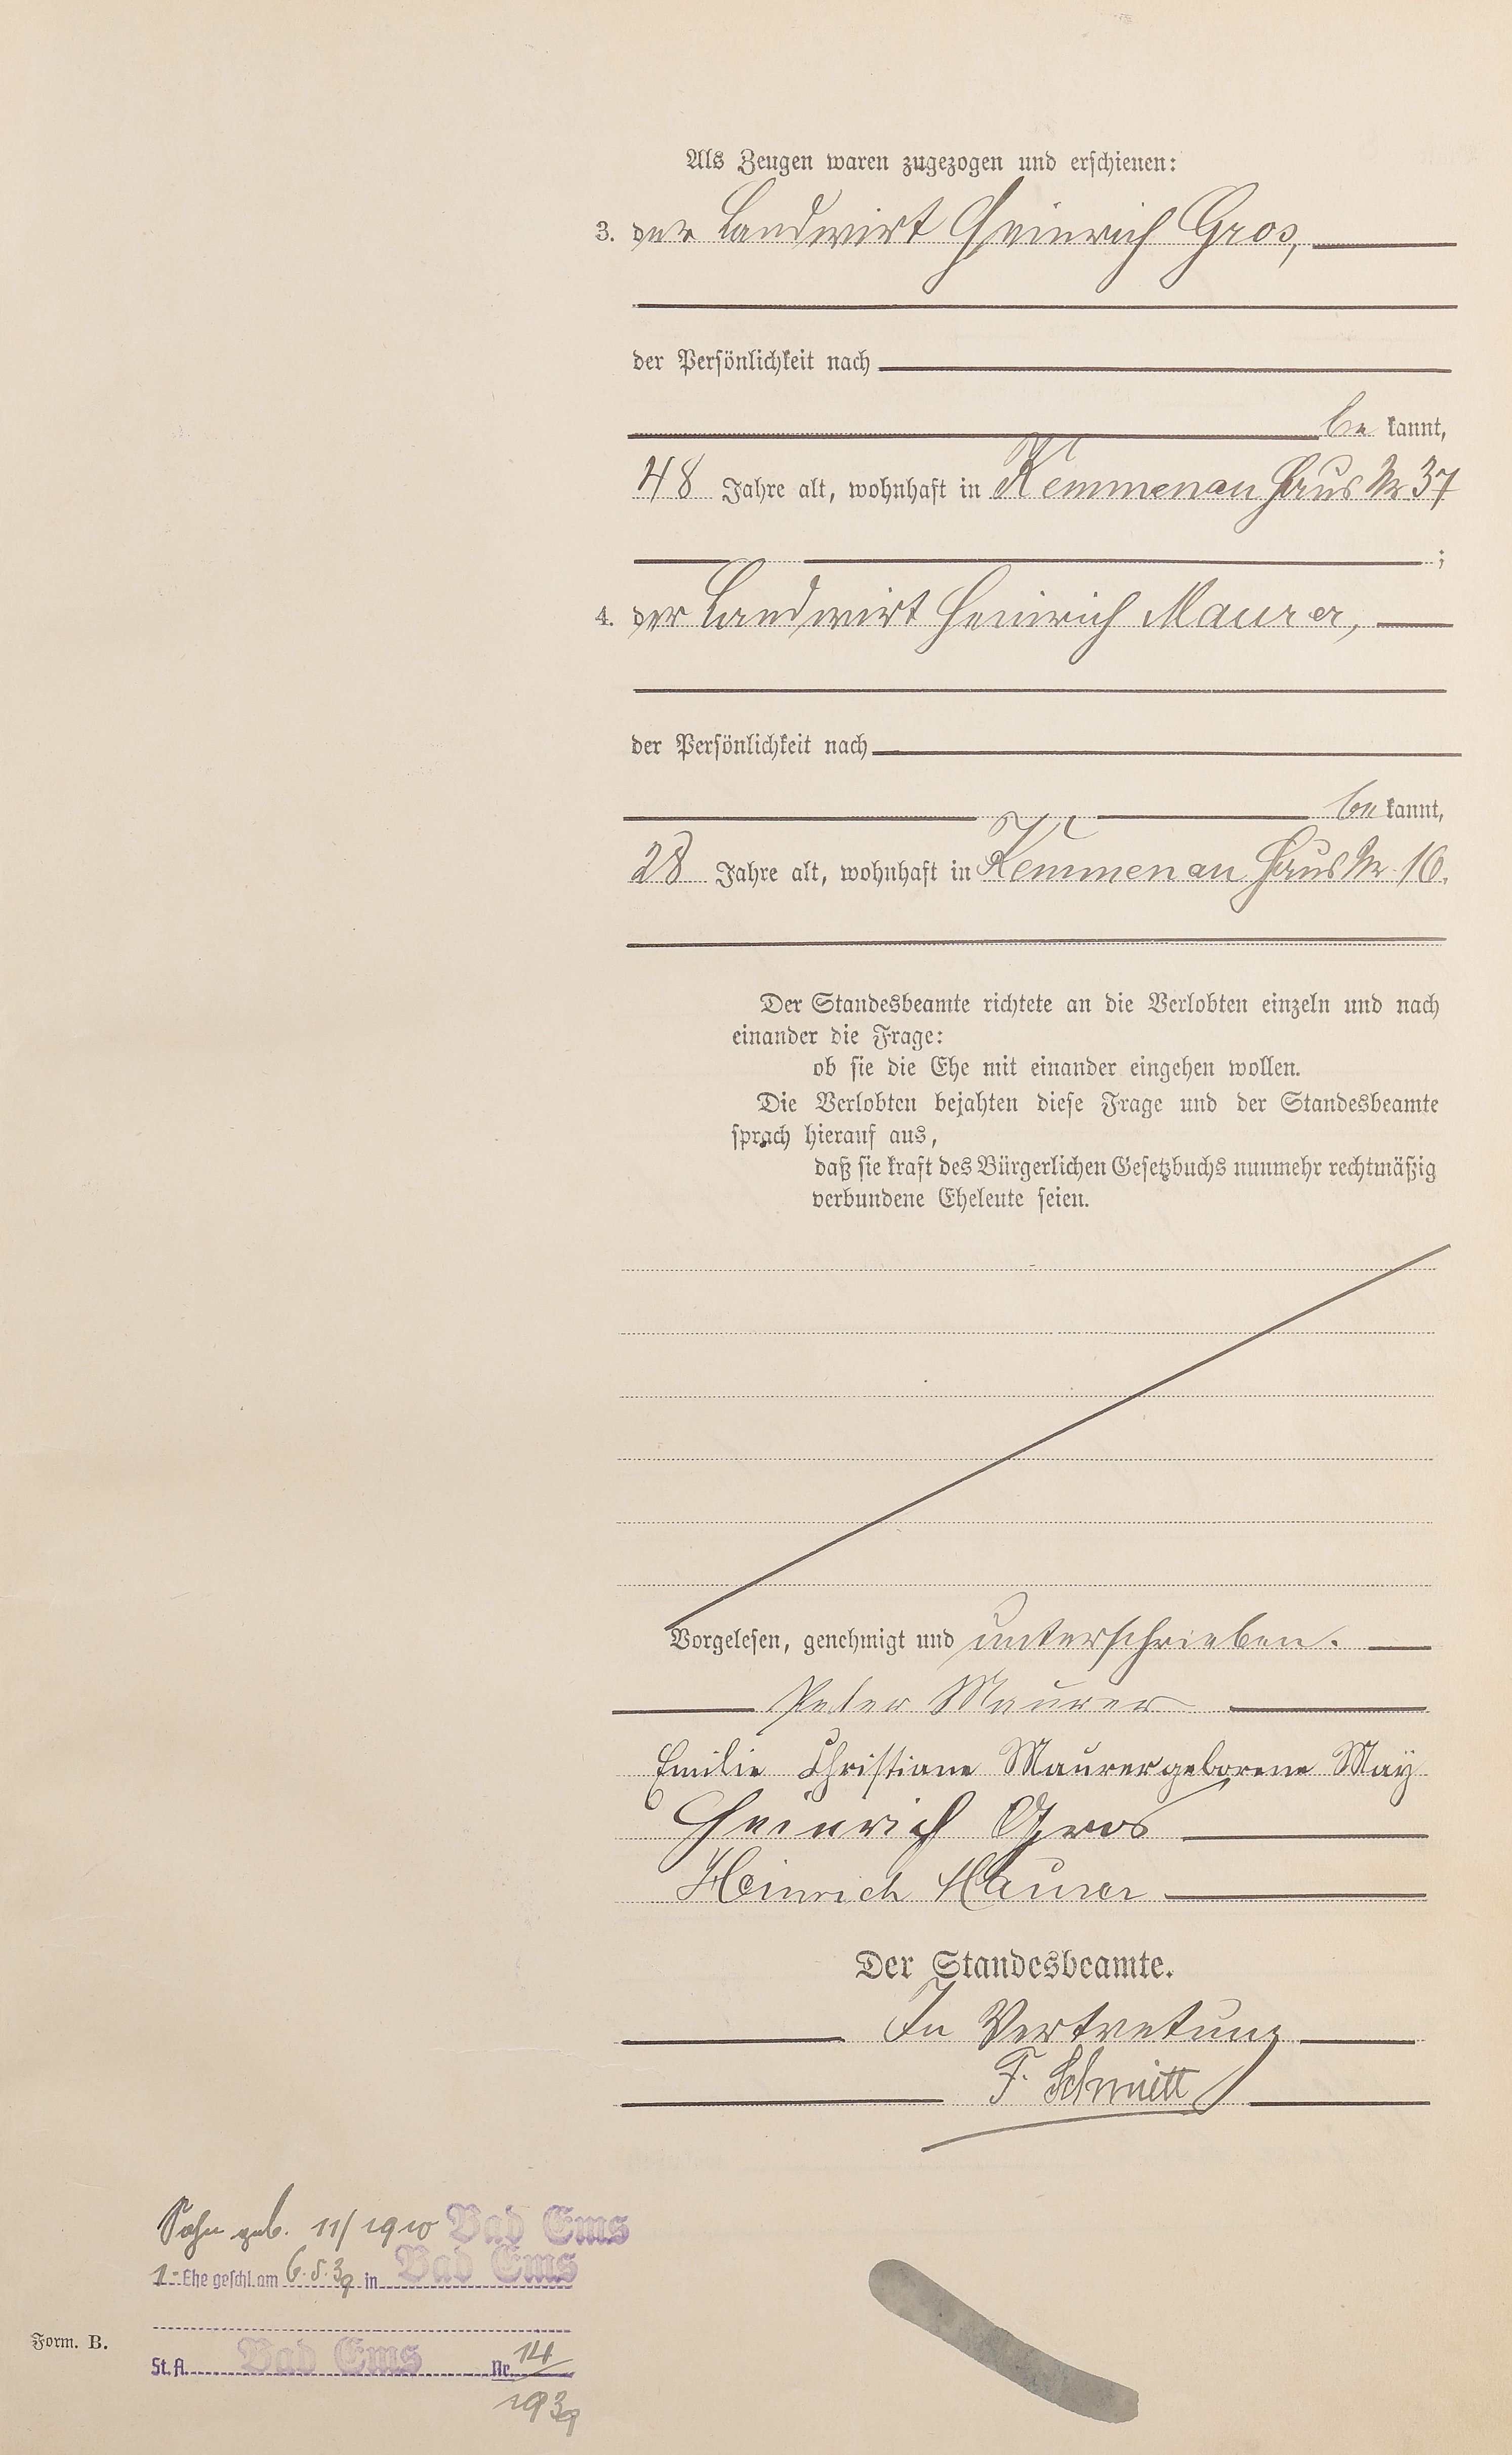 Als Zeugen waren zugezogen und erschienen:
3. der Landwirt Heinrich Gros,
der Persönlichkeit nach
be kannt,
48 Jahre alt, wohnhaft in Kemmenau Haus Nr 37
;
4. der Landwirt Heinrich Maurer,
der Persönlichkeit nach
be kannt,
28 Jahre alt, wohnhaft in Kemmenau Haus Nr. 16.
Der Standesbeamte richtete an die Verlobten einzeln und nach
einander die Frage:
ob sie die Ehe mit einander eingehen wollen.
Die Verlobten bejahten diese Frage und der Standesbeamte
sprach hierauf aus,
daß sie kraft des Bürgerlichen Gesetzbuchs nunmehr rechtmäßig
verbundene Eheleute seien.
Vorgelesen, genehmigt und unterschrieben.
Peter Maurer
Emilie Christiane Maurer geborene May
Heinrich Gros
Heinrich Maurer
Der Standesbeamte.
In Vertretung
F. Schmitt
Sohn geb. 11/1910 Bad Ems
1. Ehe geschl. am 6.5.39 in Bad Ems
Form. B.
St. A. Bad Ems Nr. 14/
1939